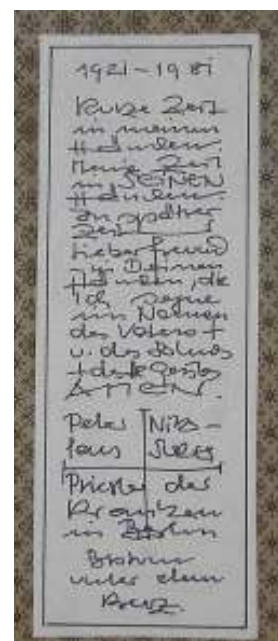 1921 – 1981
Kurze Zeit
in meinen
Händen.
Meine Zeit
in SEINEN
Händen
an später
Zeit
Lieber Freund
in Deinen
Händen, die
ich segne
im Namen
des Vaters +
u. des Sohnes
+ des hl Geistes
AMEN.
Peter Niko-
laus
Priester der
Kranken
in Berlin
Bruder
unter dem
Kreuz.